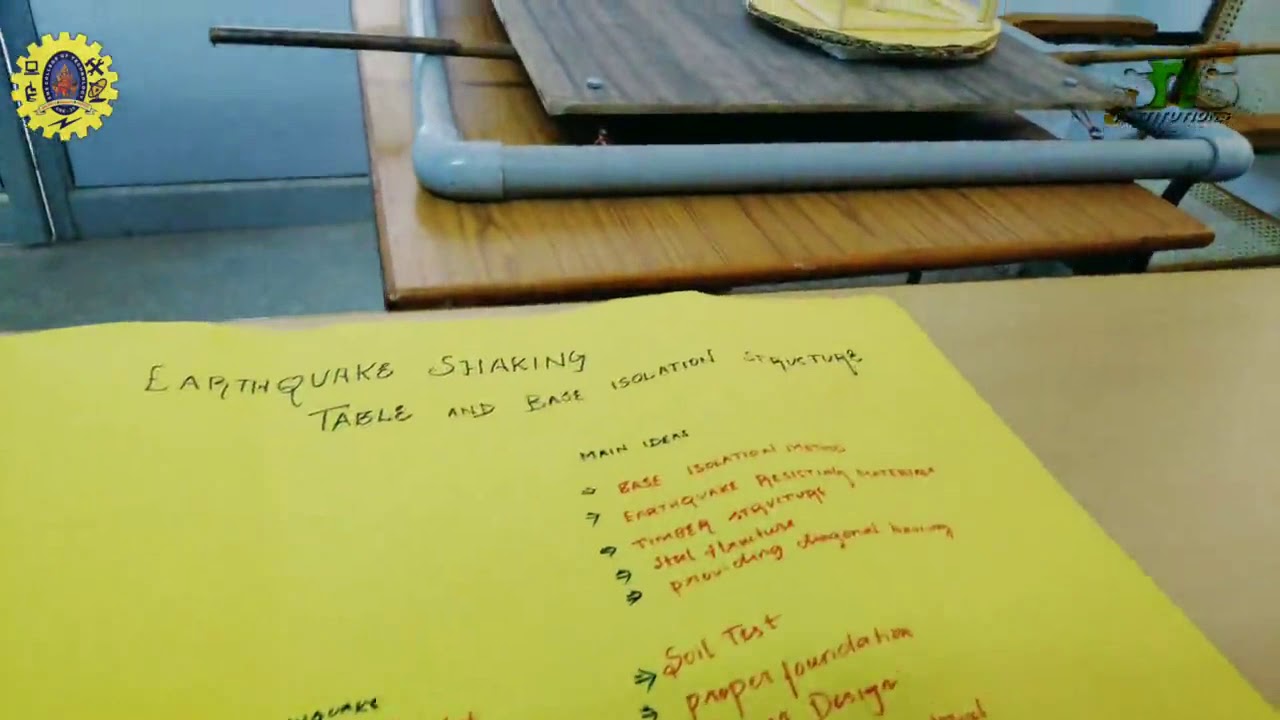 SNS
INSTITUTIONS
EARTHQUAKE SHAKING
TABLE AND BASE ISOLATION STRUCTURE
MAIN IDEAS
⇒ BASE ISOLATION METHOD
⇒ EARTHQUAKE RESISTING MATERIALS
⇒ TIMBER STRUCTURE
⇒ Steel structure
⇒ providing diagonal bracing
⇒ Soil Test
⇒ proper foundation
Design